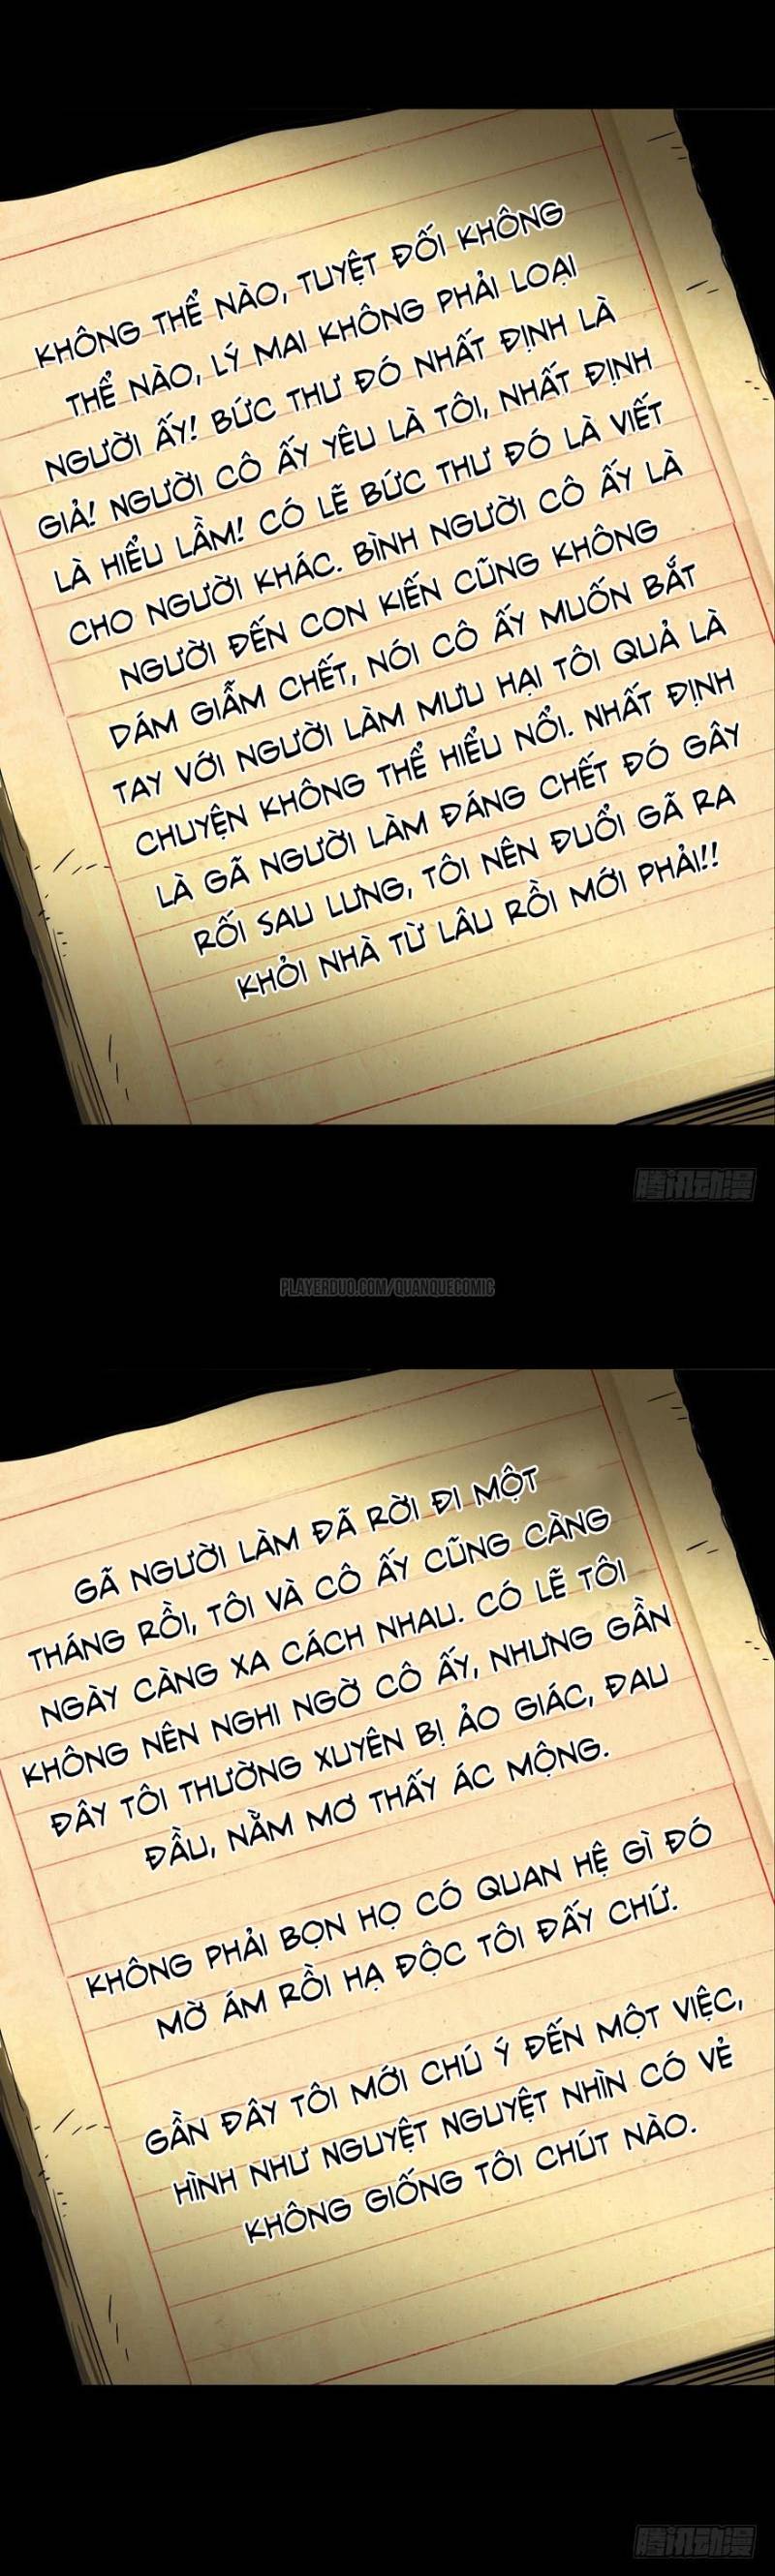 KHÔNG THỂ NÀO, TUYỆT ĐỐI KHÔNG
THỂ NÀO, LÝ MAI KHÔNG PHẢI LOẠI
NGƯỜI ẤY! BỨC THƯ ĐÓ NHẤT ĐỊNH LÀ
GIẢ! NGƯỜI CÔ ẤY YÊU LÀ TÔI, NHẤT ĐỊNH
LÀ HIỂU LẦM! CÓ LẼ BỨC THƯ ĐÓ LÀ VIẾT
CHO NGƯỜI KHÁC. BÌNH NGƯỜI CÔ ẤY LÀ
NGƯỜI ĐẾN CON KIẾN CŨNG KHÔNG
DÁM GIẪM CHẾT, NÓI CÔ ẤY MUỐN BẮT
TAY VỚI NGƯỜI LÀM MƯU HẠI TÔI QUẢ LÀ
CHUYỆN KHÔNG THỂ HIỂU NỔI. NHẤT ĐỊNH
LÀ GÃ NGƯỜI LÀM ĐÁNG CHẾT ĐÓ GÂY
RỐI SAU LƯNG, TÔI NÊN ĐUỔI GÃ RA
KHỎI NHÀ TỪ LÂU RỒI MỚI PHẢI!!
腾讯动漫
PLAYERDUO.COM/QUANQUECOMIC
GÃ NGƯỜI LÀM ĐÃ RỜI ĐI MỘT
THÁNG RỒI, TÔI VÀ CÔ ẤY CŨNG CÀNG
NGÀY CÀNG XA CÁCH NHAU. CÓ LẼ TÔI
KHÔNG NÊN NGHI NGỜ CÔ ẤY, NHƯNG GẦN
ĐÂY TÔI THƯỜNG XUYÊN BỊ ẢO GIÁC, ĐAU
ĐẦU, NẰM MƠ THẤY ÁC MỘNG.
KHÔNG PHẢI BỌN HỌ CÓ QUAN HỆ GÌ ĐÓ
MỜ ÁM RỒI HẠ ĐỘC TÔI ĐẤY CHỨ.
GẦN ĐÂY TÔI MỚI CHÚ Ý ĐẾN MỘT VIỆC,
HÌNH NHƯ NGUYỆT NGUYỆT NHÌN CÓ VẺ
KHÔNG GIỐNG TÔI CHÚT NÀO.
腾讯动漫